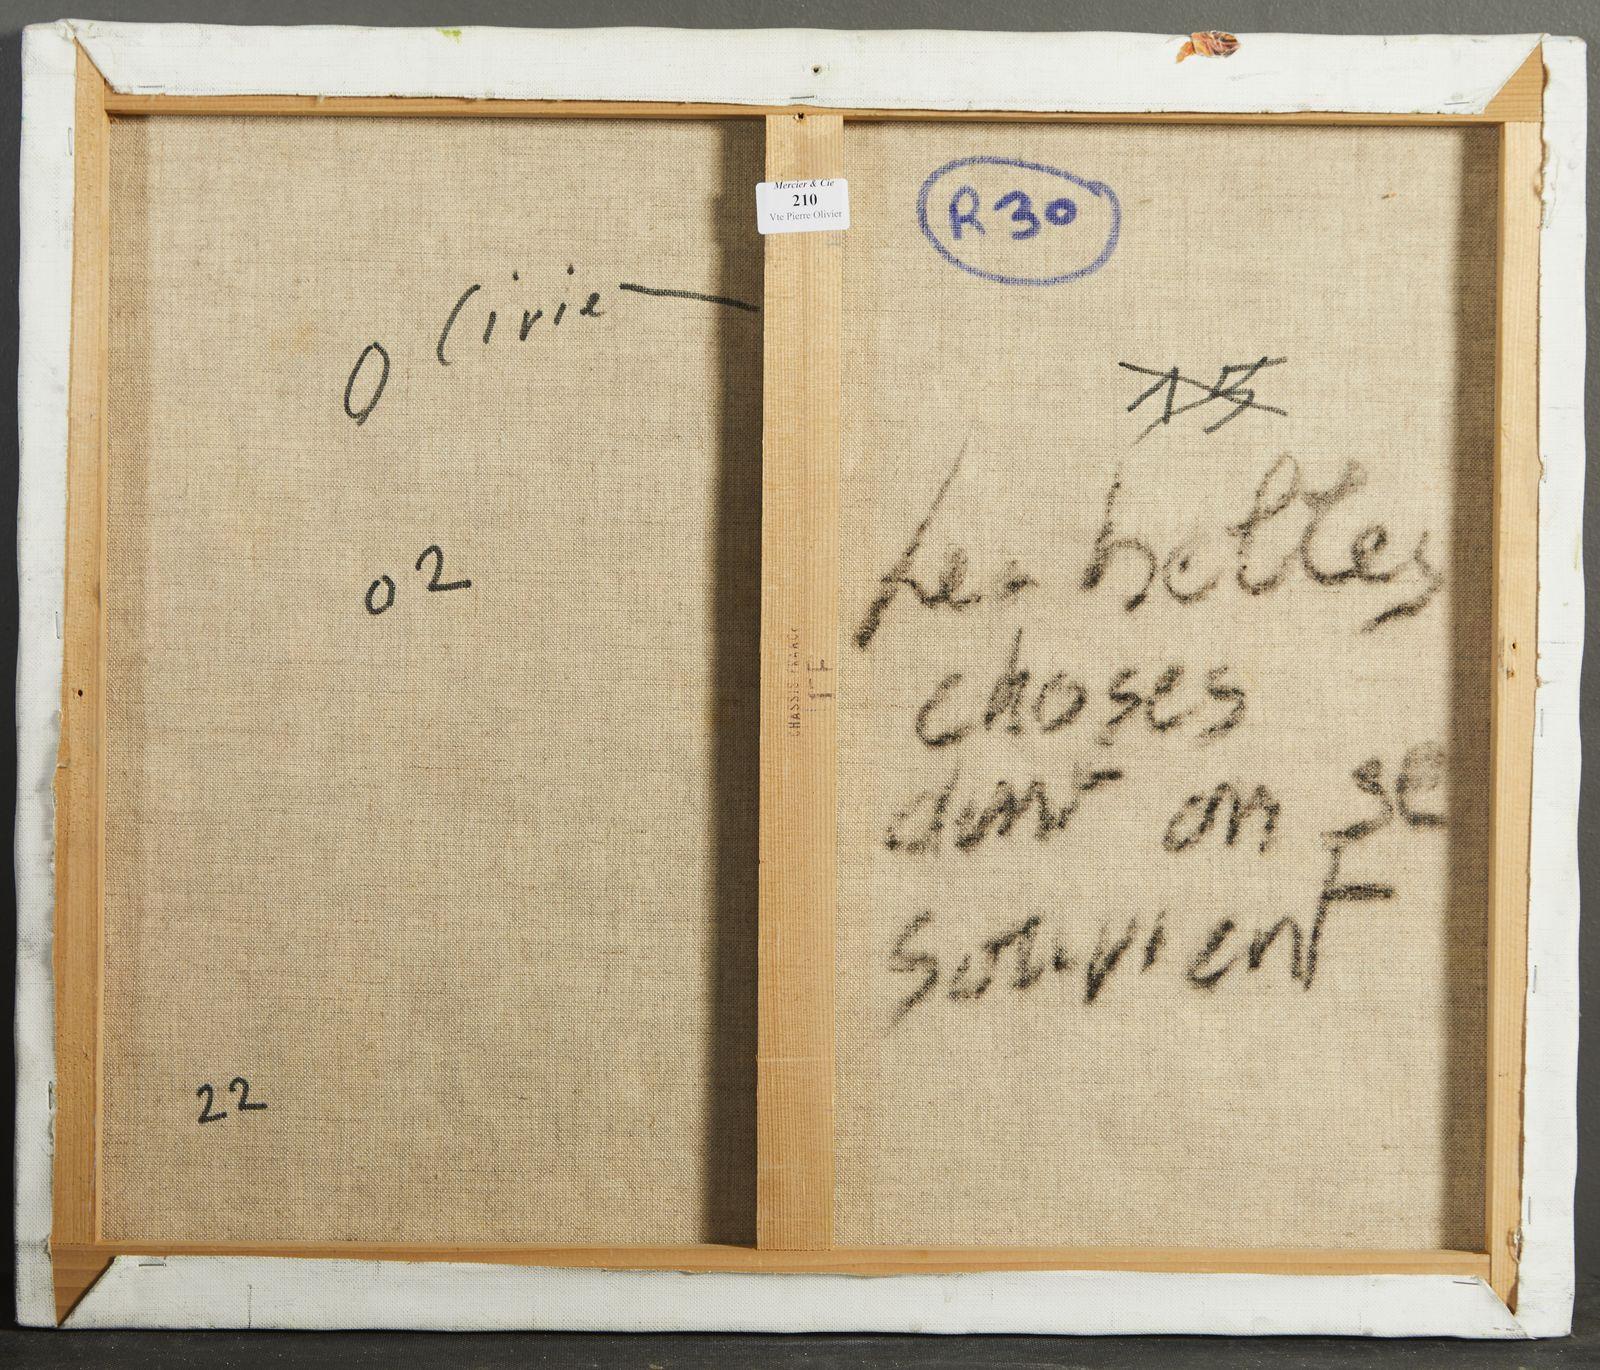 Mercier & Cie
210
Vte Pierre Olivier
R30
Olivie
15
02
Les belles
choses
dont on se
souvient
CHASSIS FRANCE
22